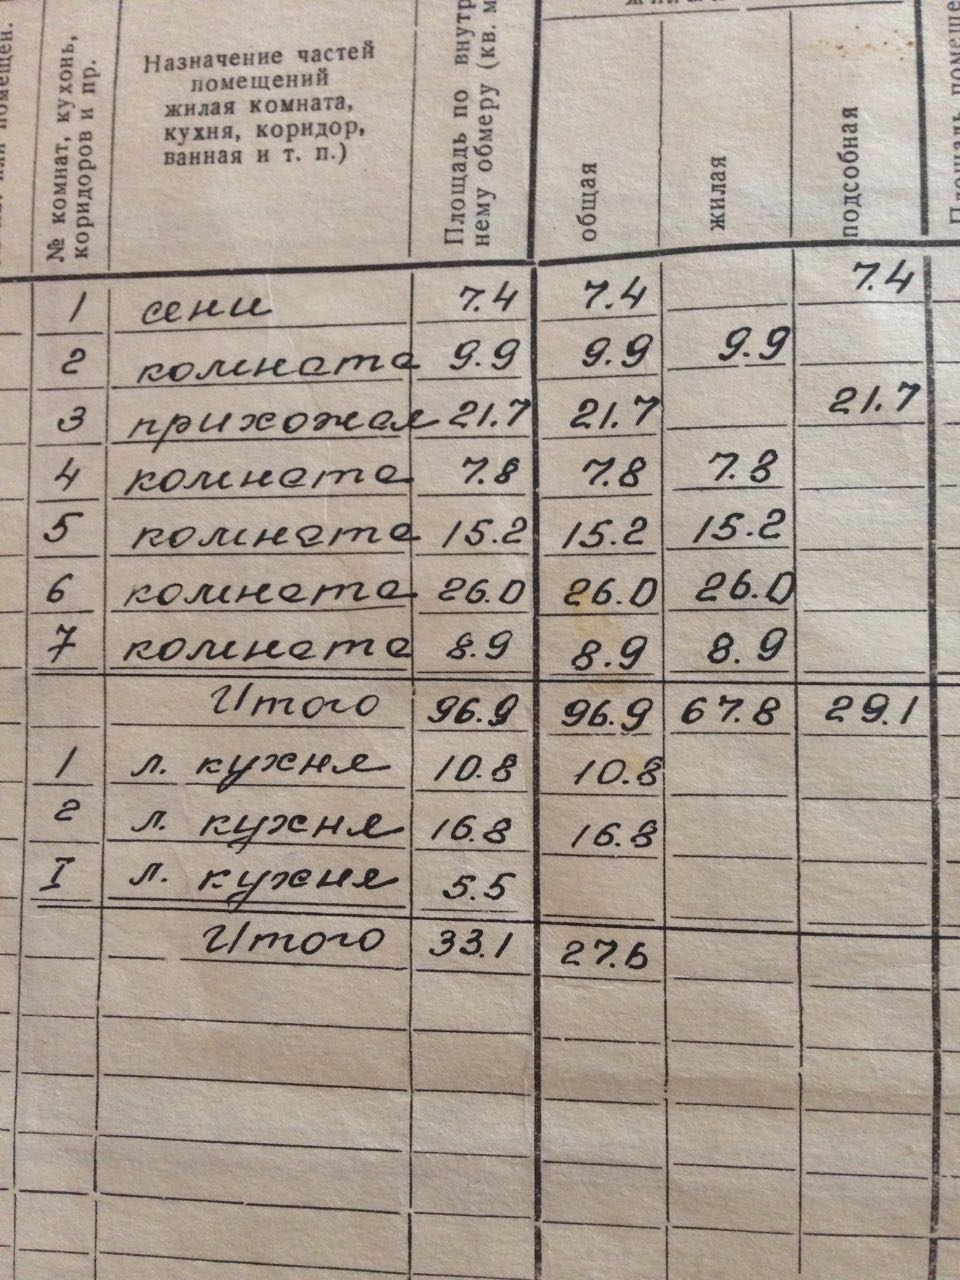 № комнат, кухонь, коридоров и пр.
Назначение частей
помещений
жилая комната,
кухня, коридор,
ванная и т. п.)
Площадь по
нему обмеру (кв. м
общая
жилая
подсобная
1 сени 7.4 7.4 7.4
2 комната 9.9 9.9 9.9
3 прихожая 21.7 21.7 21.7
4 комната 7.8 7.8 7.8
5 комната 15.2 15.2 15.2
6 комната 26.0 26.0 26.0
7 комната 8.9 8.9 8.9
Итого 96.9 96.9 67.8 29.1
1 л. кухня 10.8 10.8
2 л. кухня 16.8 16.8
I л. кухня 5.5
Итого 33.1 27.6